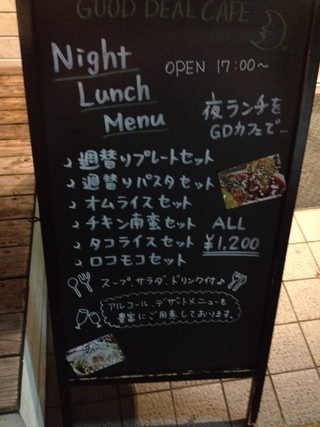 GOOD DEAL CAFE
Night
Lunch
Menu
OPEN 17:00～
夜ランチを
GDカフェで…
週替りプレートセット
週替りパスタセット
オムライスセット
チキン南蛮セット
タコライスセット
ロコモコセット
ALL
¥1,200
スープ、サラダ、ドリンク付♪
アルコール、デザートメニューも
豊富にご用意しております。